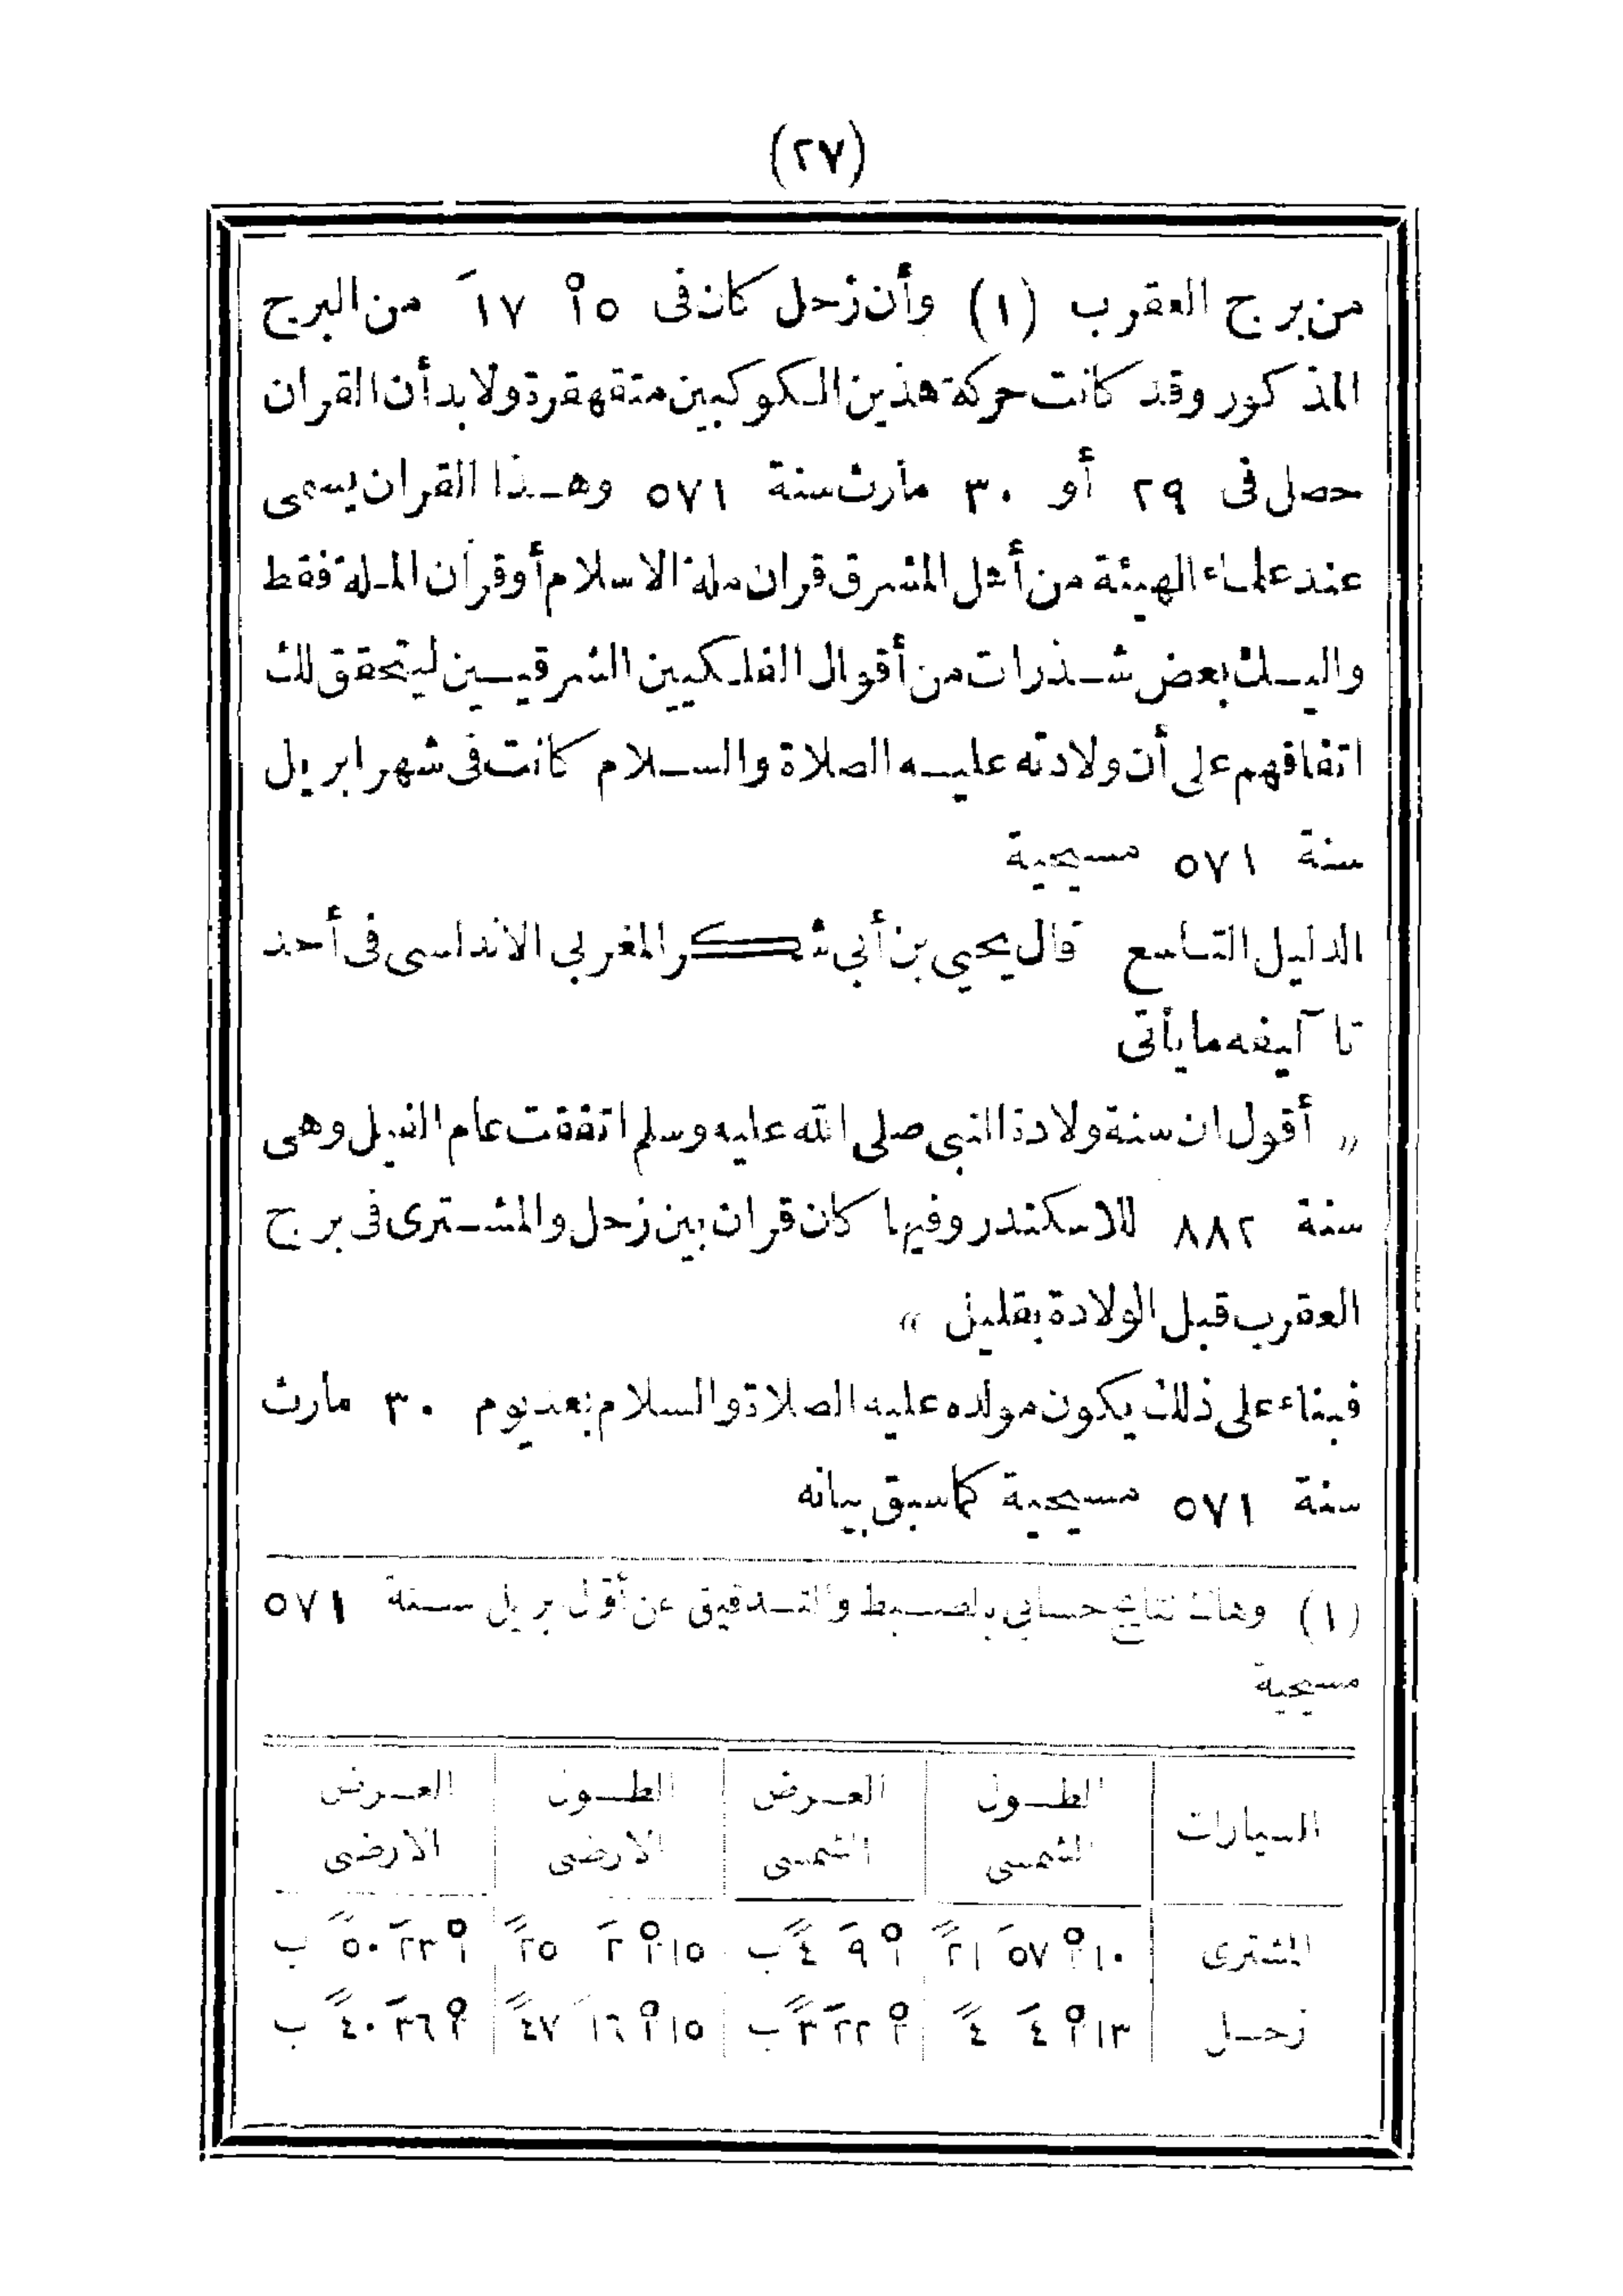 (٢٧)
من برج العقرب (١) وأن زحل كان فى ١٥° ١٧َ من البرج
المذكور وقد كانت حركة هذين الكوكبين متقهقرة ولا بد أن القران
حصل فى ٢٩ أو ٣٠ مارث سنة ٥٧١ وهذا القران يسمى
عند علماء الهيئة من أهل المشرق قران ملة الاسلام أو قران الملة فقط
واليك بعض شذرات من أقوال الفلكيين الشرقيين ليتحقق لك
اتفاقهم على أن ولادته عليه الصلاة والسلام كانت فى شهر ابريل
سنة ٥٧١ مسيحية
الدليل التاسع قال يحيى بن أبى شكر المغربى الاندلسى فى أحد
تا آليفه ما يأتى
« أقول ان سنة ولادة النبى صلى الله عليه وسلم اتفقت عام الفيل وهى
سنة ٨٨٢ للاسكندر وفيها كان قران بين زحل والمشترى فى برج
العقرب قبل الولادة بقليل »
فبناء على ذلك يكون مولده عليه الصلاة والسلام بعد يوم ٣٠ مارث
سنة ٥٧١ مسيحية كما سبق بيانه
(١) وهاك نتائج حسابى بالضبط والتدقيق عن أوّل بريل سنة ٥٧١
مسيحية
السيارات الطول الشمسى العرض الشمسى الطول الارضى العرض الارضى
المشترى ٢١٠° ٥٧َ ٢١ً ١° ٩َ ٤ً ب ٢١٥° ٢َ ٢٥ً ١° ٢٣َ ٥٠ً ب
زحل ٢١٣° ٤َ ٤ً ٢° ٢٢َ ٣ً ب ٢١٥° ١٦َ ٤٧ً ٢° ٣٦َ ٤٠ً ب